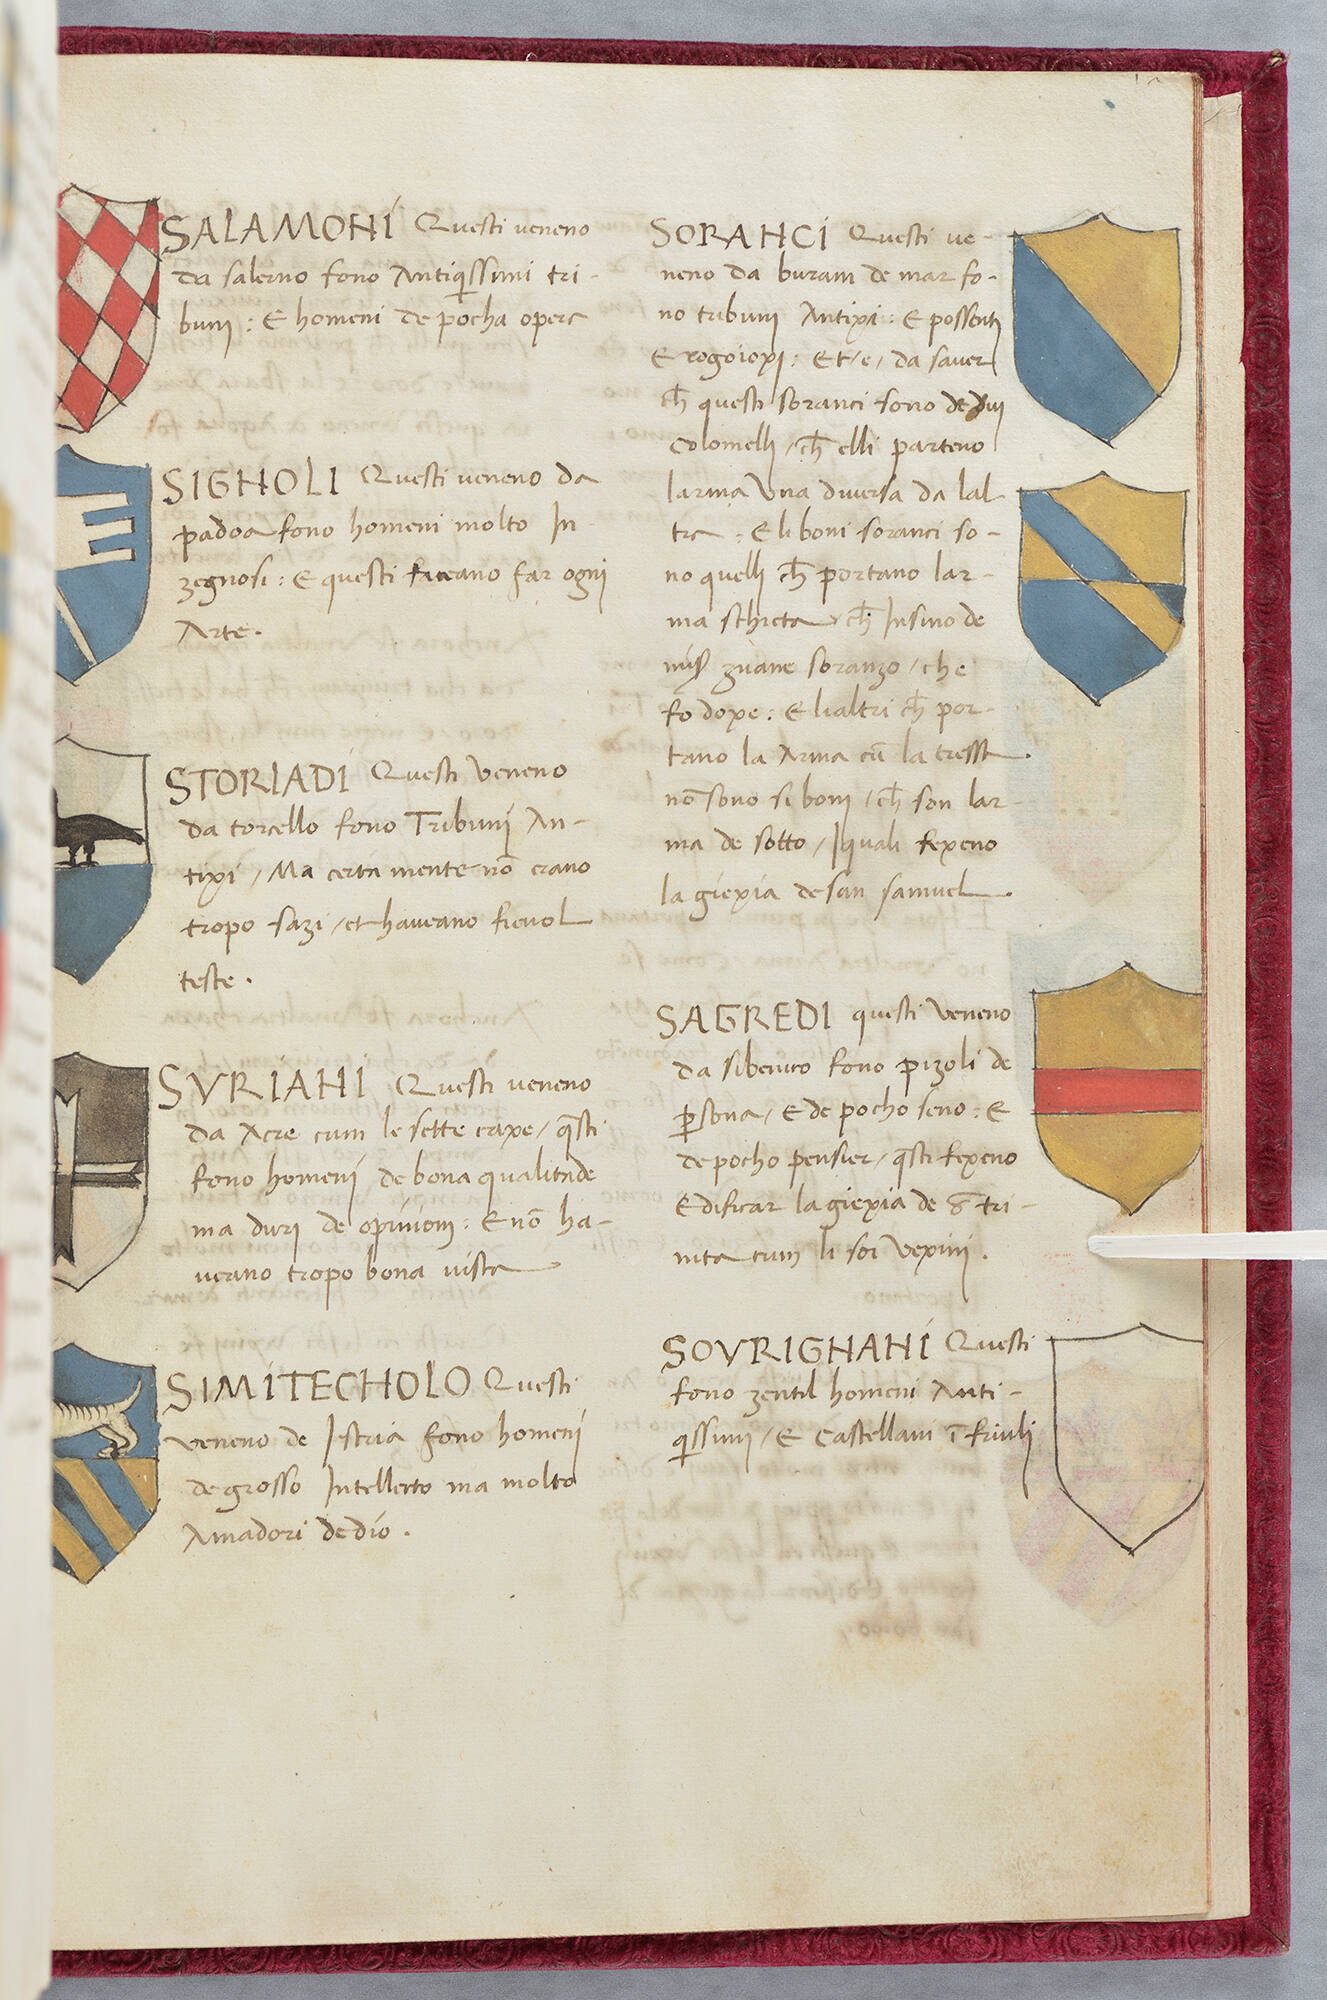 SALAMONI Questi veneno
da salerno fono Antiqissimi tri-
buni : E homeni de pocha opera
SIGHOLI Questi veneno da
padoa fono homeni molto In-
zegnosi : E questi faceano far ogni
Arte.
STORIADI Questi Veneno
da torcello fono Tribuni An-
tixi / Ma certa mente nō erano
tropo sazi / et haveano fievol
teste .
SVRIANI Questi veneno
da Acre cum le sette caxe / qsti
fono homeni de bona qualitade
ma duri de opinioni : E nō ha-
verano tropo bona vista
SIMITECHOLO Questi
veneno de Istria fono homeni
de grosso Intelletto ma molto
Amadori de dio .
SORANCI Questi ve-
neno da buram de mar fo-
no tribuni Antixi : E possenti
E rogoioxi : Et / e / da saver
ch̄ questi soranci fono de dui
Colomelli / ch̄ elli parteno
larma Vna diversa da lal-
tra : E li boni soranci so-
no quelli ch̄ portano lar-
ma schieta ch̄ Insino de
zuane soranzo / che
fo doxe : E li altri ch̄ por-
tano la Arma cū la tressa .
nō sono si boni / ch̄ son lar-
ma de sotto / Iquali fexeno
la giexia de san samuel .
SAGREDI questi Veneno
da sibenico fono pizoli de
psona / E de pocho seno : E
de pocho pensier / qsti fexeno
Edificar la giexia de S tri-
nita cum li soi Vexini .
SOVRIGHANI Questi
fono zentil homeni Anti-
qissimi / E Castellani ī friuli